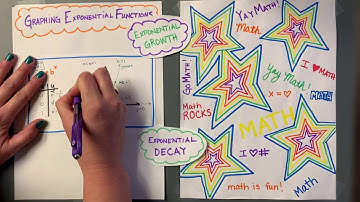 GRAPHING EXPONENTIAL FUNCTIONS
EXPONENTIAL
GROWTH
EXPONENTIAL
DECAY
YAY MATH!
Math
GO MATH!
I ♥ MATH
Yay Math!
x = ♡
MATH
Math
ROCKS
MATH
I ♡ #
math is fun!
Math